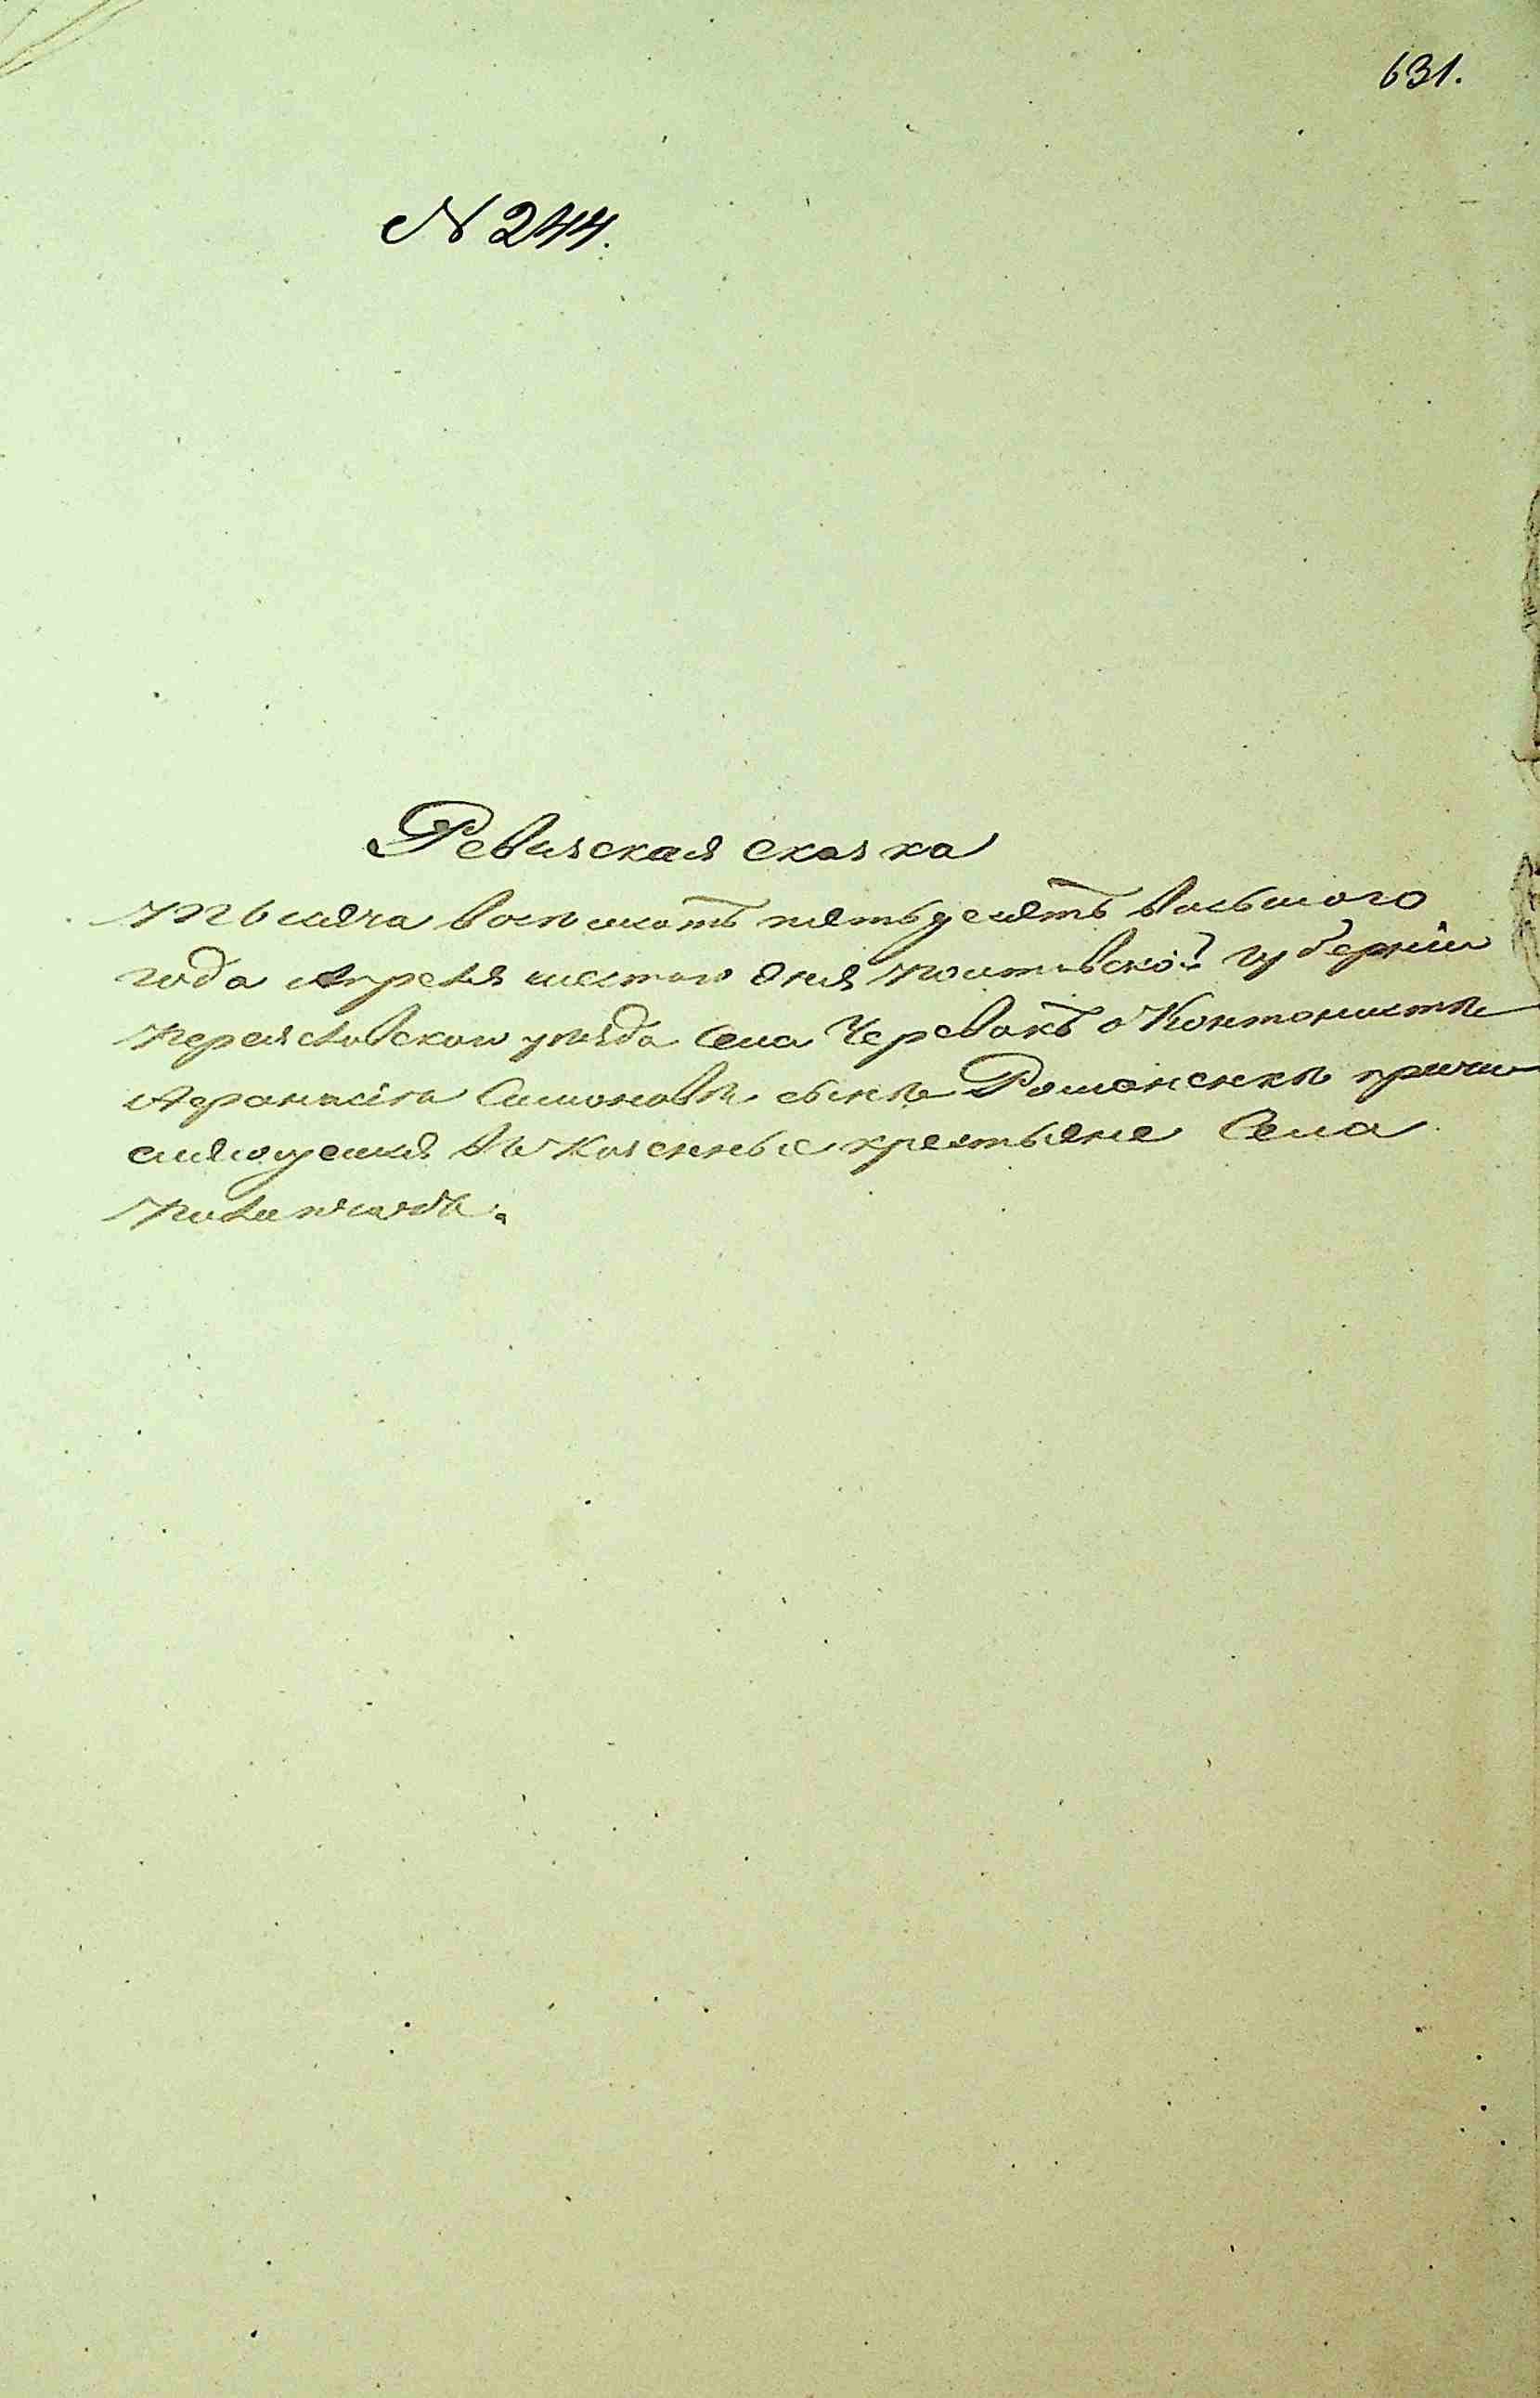 631.
N 244.
Ревизская сказка
Тысяча восемьсотъ пятьдесятъ восьмого
года Апреля шестого дня Полтавской губернiи
Переяславскаго уѣзда Села Черевокъ о Контонистѣ
Афанасiѣ Симоновѣ сынѣ Романенкѣ причи
сляющемся въ Казенные крестьяне Села